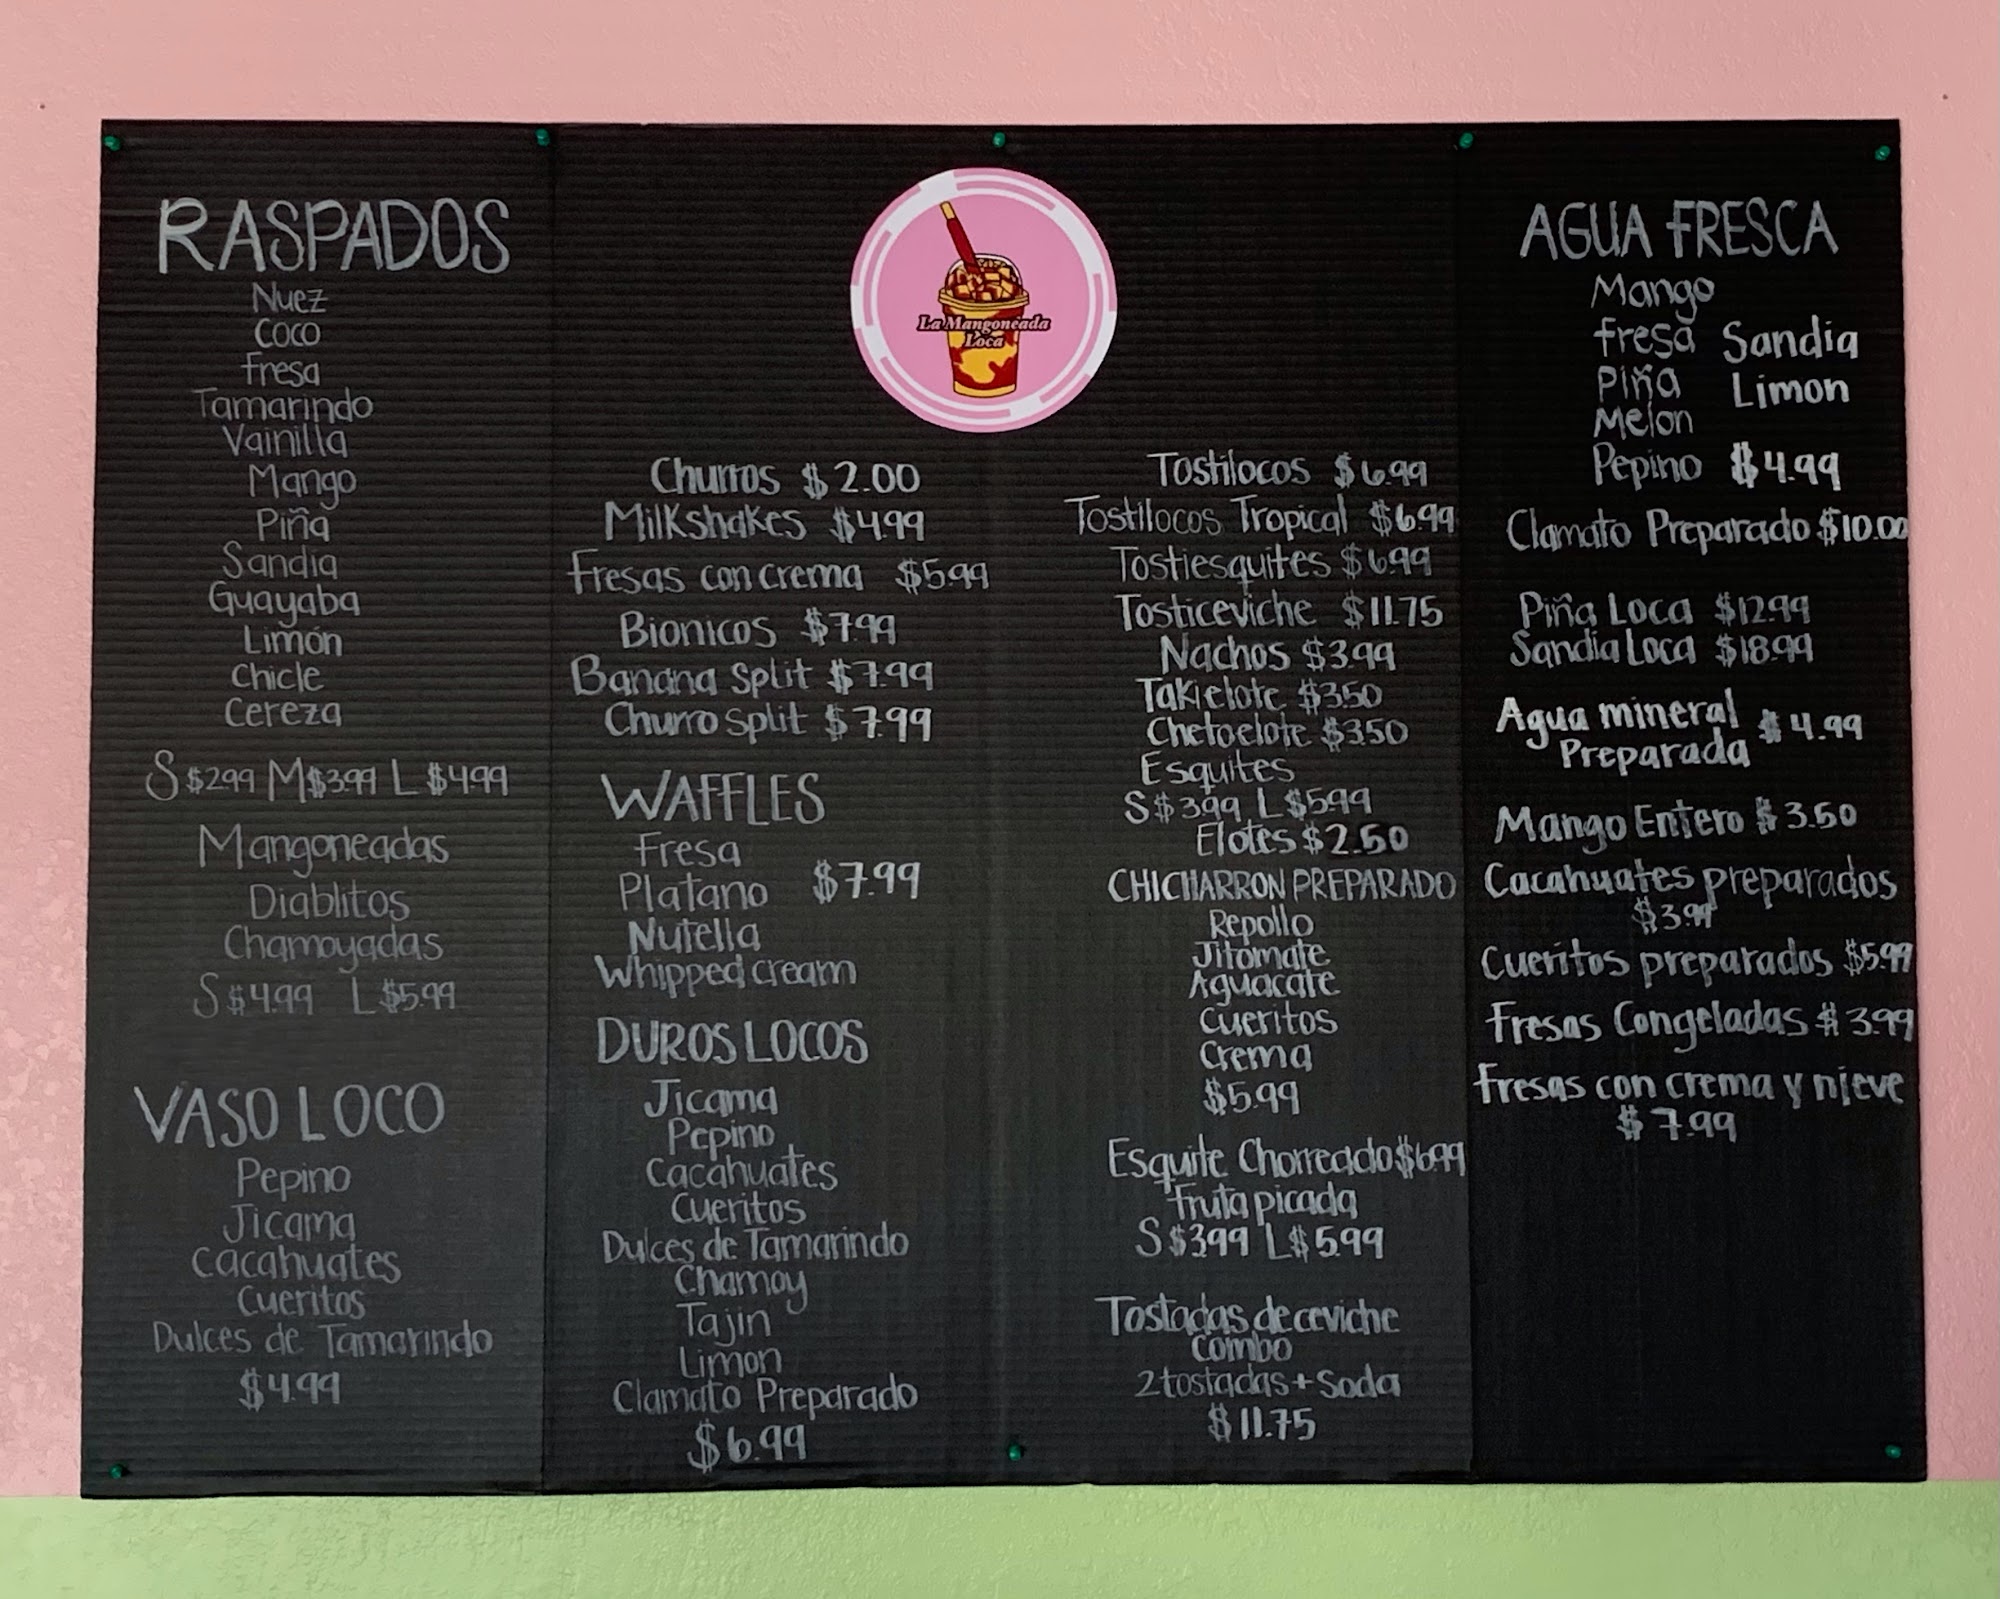 RASPADOS
Nuez
Coco
fresa
Tamarindo
Vainilla
Mango
Piña
Sandia
Guayaba
Limón
Chicle
Cereza
S $2.99 M $3.99 L $4.99
Mangoneadas
Diablitos
Chamoyadas
S $4.99 L $5.99
VASO LOCO
Pepino
Jicama
Cacahuates
Cueritos
Dulces de Tamarindo
$4.99
La Mangoneada
Loca
Churros $2.00
Milkshakes $4.99
Fresas con crema $5.99
Bionicos $7.99
Banana Split $7.99
Churro split $7.99
WAFFLES
Fresa
Platano $7.99
Nutella
Whipped cream
DUROS LOCOS
Jicama
Pepino
Cacahuates
Cueritos
Dulces de Tamarindo
Chamoy
Tajin
Limon
Clamato Preparado
$6.99
Tostilocos $6.99
Tostilocos Tropical $6.99
Tostiesquites $6.99
Tosticeviche $11.75
Nachos $3.99
Takielote $3.50
Chetoelote $3.50
Esquites
S $3.99 L $5.99
Elotes $2.50
CHICHARRON PREPARADO
Repollo
Jitomate
Aguacate
Cueritos
Crema
$5.99
Esquite Chorreado $6.99
fruta picada
S $3.99 L $5.99
Tostadas de ceviche
Combo
2 tostadas + Soda
$11.75
AGUA FRESCA
Mango
fresa Sandia
Piña Limon
Melon
Pepino $4.99
Clamato Preparado $10.00
Piña Loca $12.99
Sandia Loca $18.99
Agua mineral
Preparada $4.99
Mango Entero $3.50
Cacahuates preparados
$3.99
Cueritos preparados $5.99
Fresas Congeladas $3.99
fresas con crema y nieve
$7.99